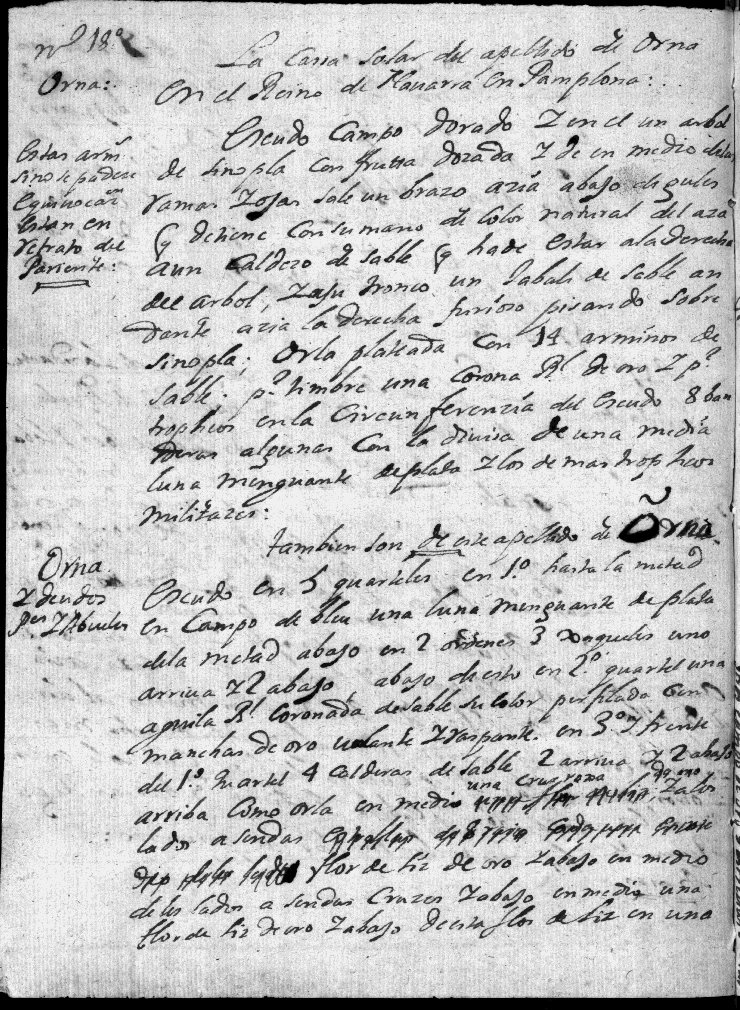 nº 18º
Orna:.
La Cassa solar del apellido de Orna
en el Reino de Nauarra en Pamplona:.
Escudo Campo dorado Z en el un arbol
de sinopla con frutta dorada Z de en medio de las
ramas Zojas sale un brazo azia abajo de gules
q detiene con su mano de Color natural del aza
a un Caldero de sable q ha de estar a la derecha
del arbol, Zasu tronco un Jabali de sable an
dante azia la derecha furioso pisando sobre
sinopla; Orla plateada con 14 arminos de
sable. pr. timbre una Corona Rl. de oro Z pr.
tropheos en la Circunferenzia del escudo 8 ban
deras algunas con la divisa de una media
luna menguante de plata Z los demas tropheos
militares:
Estas armˢ
sino se padeze
Equiuocaᵒⁿ
estan en
retrato del
Pariente:
tambien son de este apellido de Orna.
Orna
Y deudos
Z Abuelos
Escudo en 5 quarteles en 1.º hasta la metad
en Campo de bleu una luna menguante de plata
dela metad abajo en 2 ordenes 3 uno
arriua Z 2 abajo abajo de esto en 2.º quartel una
aguila Rl. Coronada de sable su color perfilada con
manchas de oro uolante Z raspante. en 3º Z frente
del 1.º quartel 4 Calderas de sable 2 arriua Z 2 abajo
arriba como orla en medio una cruz roxa Z a los
lados a sendas
flor de liz de oro Z abajo en medio
de los lados a sendas Cruzes Z abajo en medio una
flor de liz de oro Z abajo de esta flor de liz en una